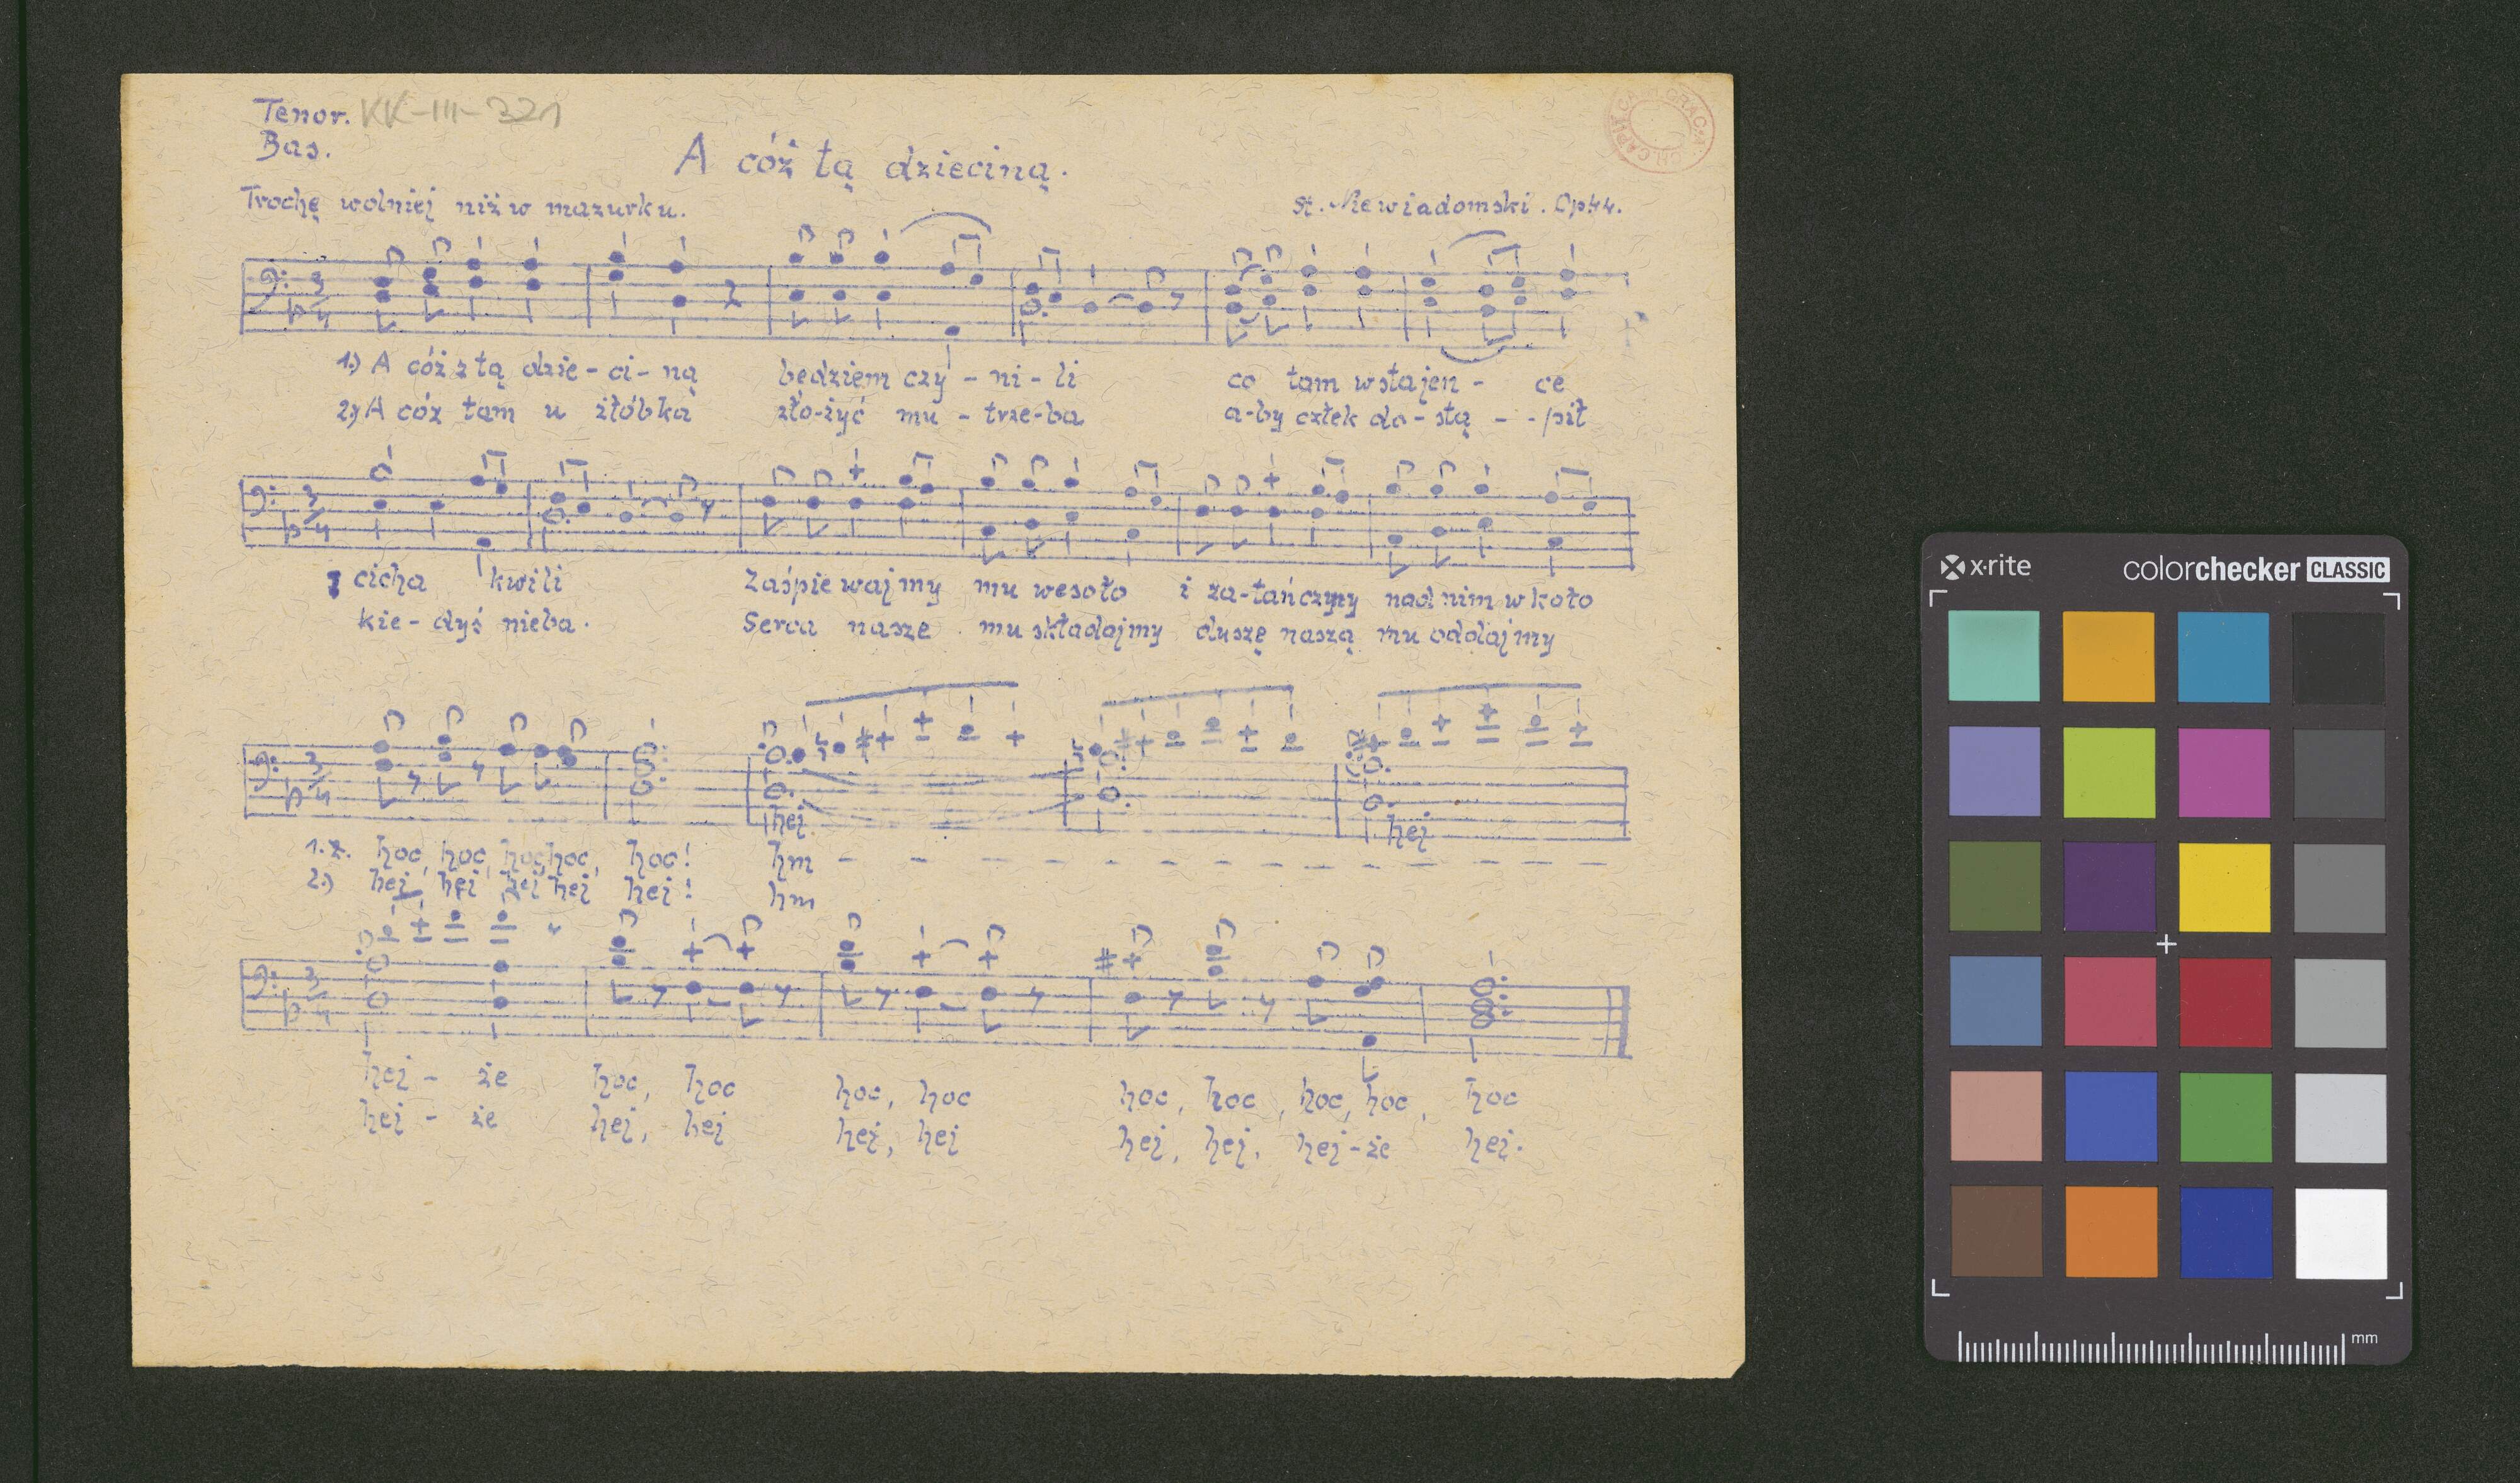 Tenor. KK-III-321
Bas.
A cóż tą dzieciną.
Trochę wolniej niż w mazurku.
St. Niewiadomski. Op.44.
1.) A cóż z tą dzie - ci - ną będziem czy - ni - li co tam w stajen - ce
2.) A cóż tam u żłóbka zło-żyć mu - trze-ba a-by człek do - stą - - pił
cicha kwili Zaśpiewajmy mu wesoło i za-tańczymy nad nim w koło
kie - dyś nieba. Serca nasze mu składajmy duszę naszą mu oddajmy
hej hej
1.2. hoc, hoc, hoc hoc, hoc! hm - - - - - - - - - - - -
2.) hej, hej, hej hej, hej! hm
hej - że hoc, hoc hoc, hoc hoc, hoc, hoc, hoc, hoc
hej - że hej, - hej hej, hej hej, hej, hej-że hej.
x·rite colorchecker CLASSIC
mm